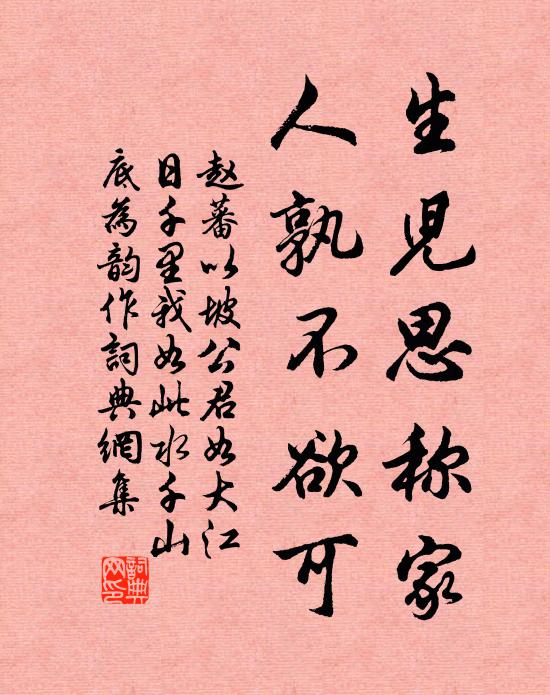 生児思称家
人孰不欲可
赵蕃以坡公君如大江
日千里我如此水千山
底為韵作詞典網集
詞典网印